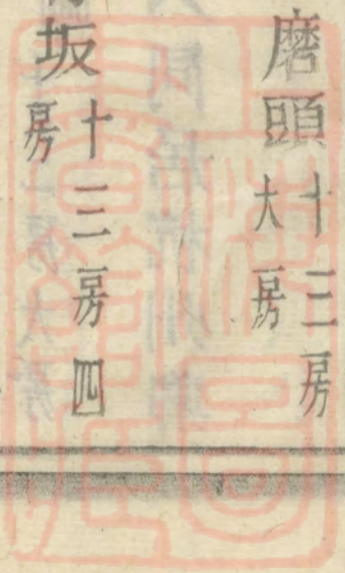 磨頭
十三房
大房
坂
十三房四
房